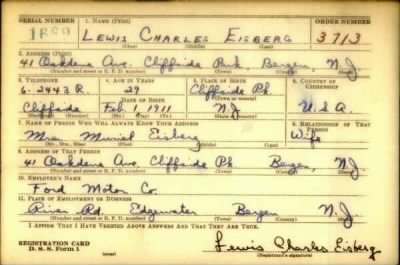 SERIAL NUMBER 1. NAME (Print) ORDER NUMBER
LEWIS CHARLES EISBERG 3713
(First) (Middle) (Last)
2. ADDRESS (Print)
41 Oakdene Ave. Cliffside Park, Bergen, N.J
(Number and street or R. F. D. number) (Town) (County) (State)
3. TELEPHONE 4. AGE IN YEARS 5. PLACE OF BIRTH 6. COUNTRY OF CITIZENSHIP
6-2443 R. 29 Cliffside Pk
DATE OF BIRTH (Town or county)
Cliffside Feb 1, 1911 N.J U.S.A.
7. NAME OF PERSON WHO WILL ALWAYS KNOW YOUR ADDRESS 8. RELATIONSHIP OF THAT PERSON
Mrs. Muriel Eisberg Wife
(Mr., Mrs., Miss) (First) (Middle) (Last)
9. ADDRESS OF THAT PERSON
41 Oakdene Ave. Cliffside Pk Bergen, N.J.
(Number and street or R. F. D. number) (Town) (County) (State)
10. EMPLOYER'S NAME
Ford Motor Co.
11. PLACE OF EMPLOYMENT OR BUSINESS
River Rd. Edgewater Bergen N.J.
(Number and street or R. F. D. number) (Town) (County) (State)
I AFFIRM THAT I HAVE VERIFIED ABOVE ANSWERS AND THAT THEY ARE TRUE.
REGISTRATION CARD
D. S. S. Form 1 (over) Lewis Charles Eisberg
(Registrant's signature)